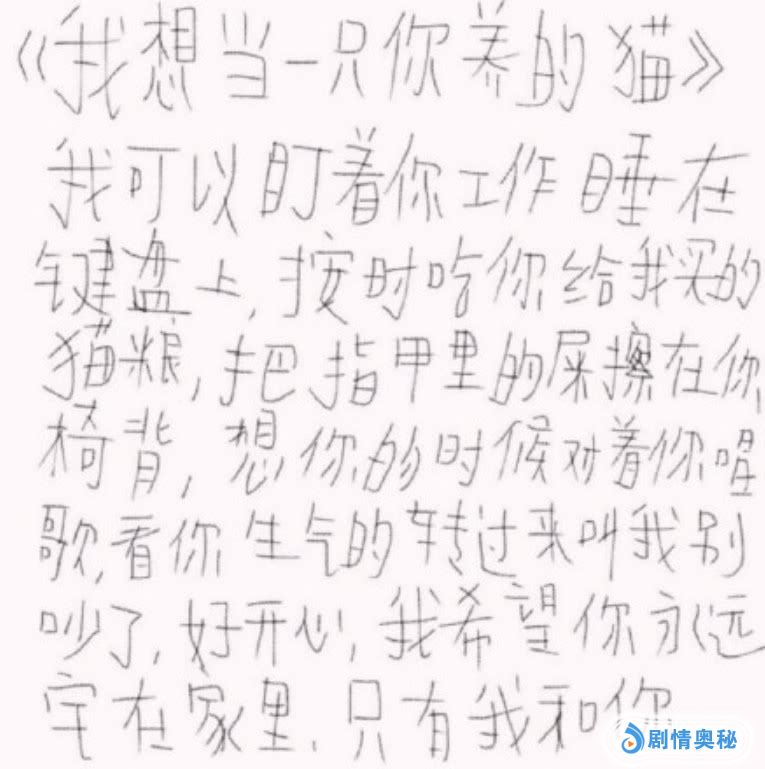 《我想当一只你养的猫》
我可以盯着你工作睡在
键盘上,按时吃你给我买的
猫粮,把指甲里的屎擦在你
椅背,想你的时候对着你唱
歌,看你生气的转过来叫我别
吵了,好开心,我希望你永远
宅在家里,只有我和你
剧情奥秘